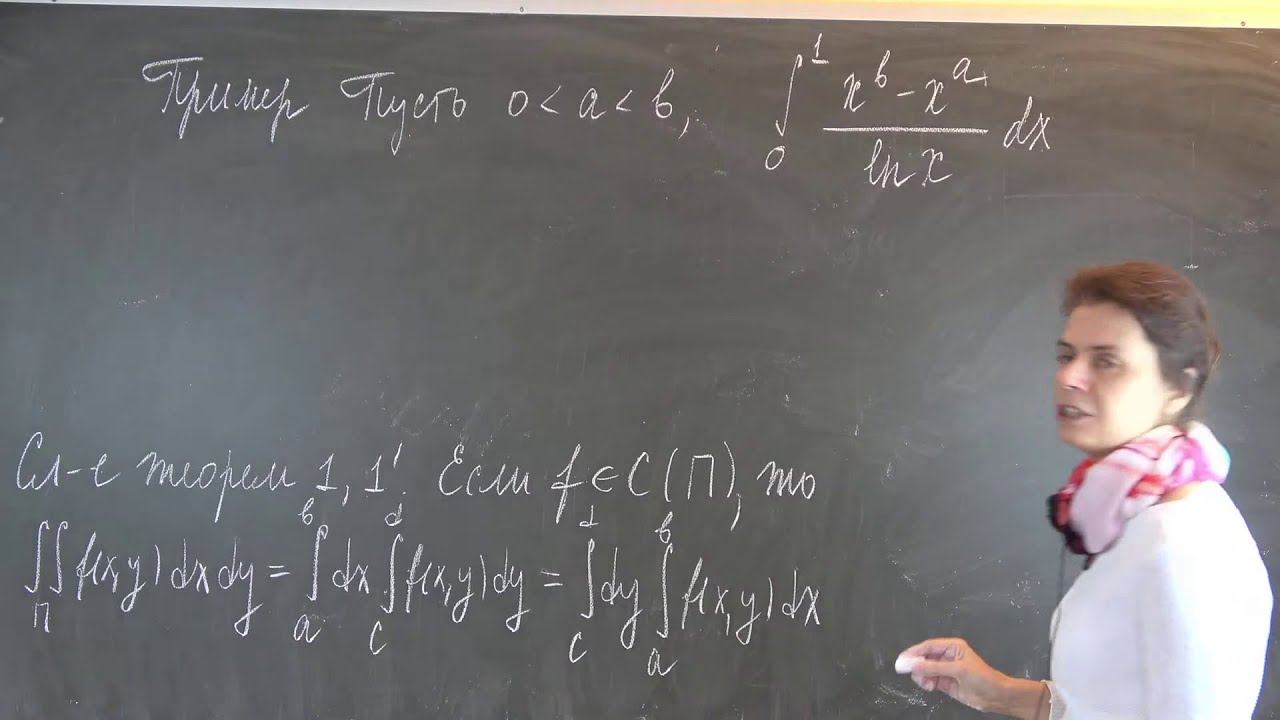 Пример Пусть 0 < a < b, ∫₀¹ (x^b − x^a)/(ln x) dx
Сл-е теорем 1, 1'. Если f ∈ C(П), то
∬_П f(x,y) dx dy = ∫_a^b dx ∫_c^d f(x,y) dy = ∫_c^d dy ∫_a^b f(x,y) dx